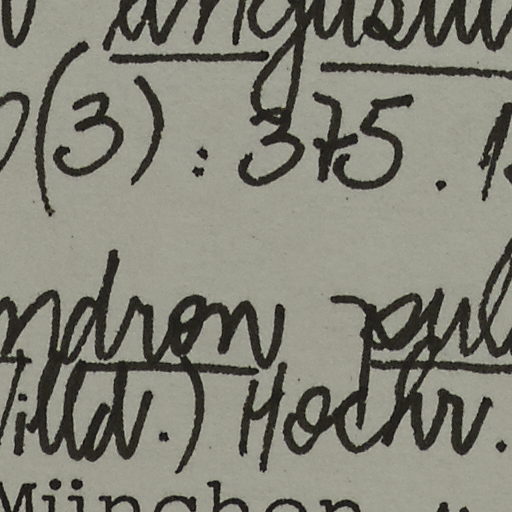 angustu
(3): 375. 1
ndron pul
Willd.) Hochr.
München